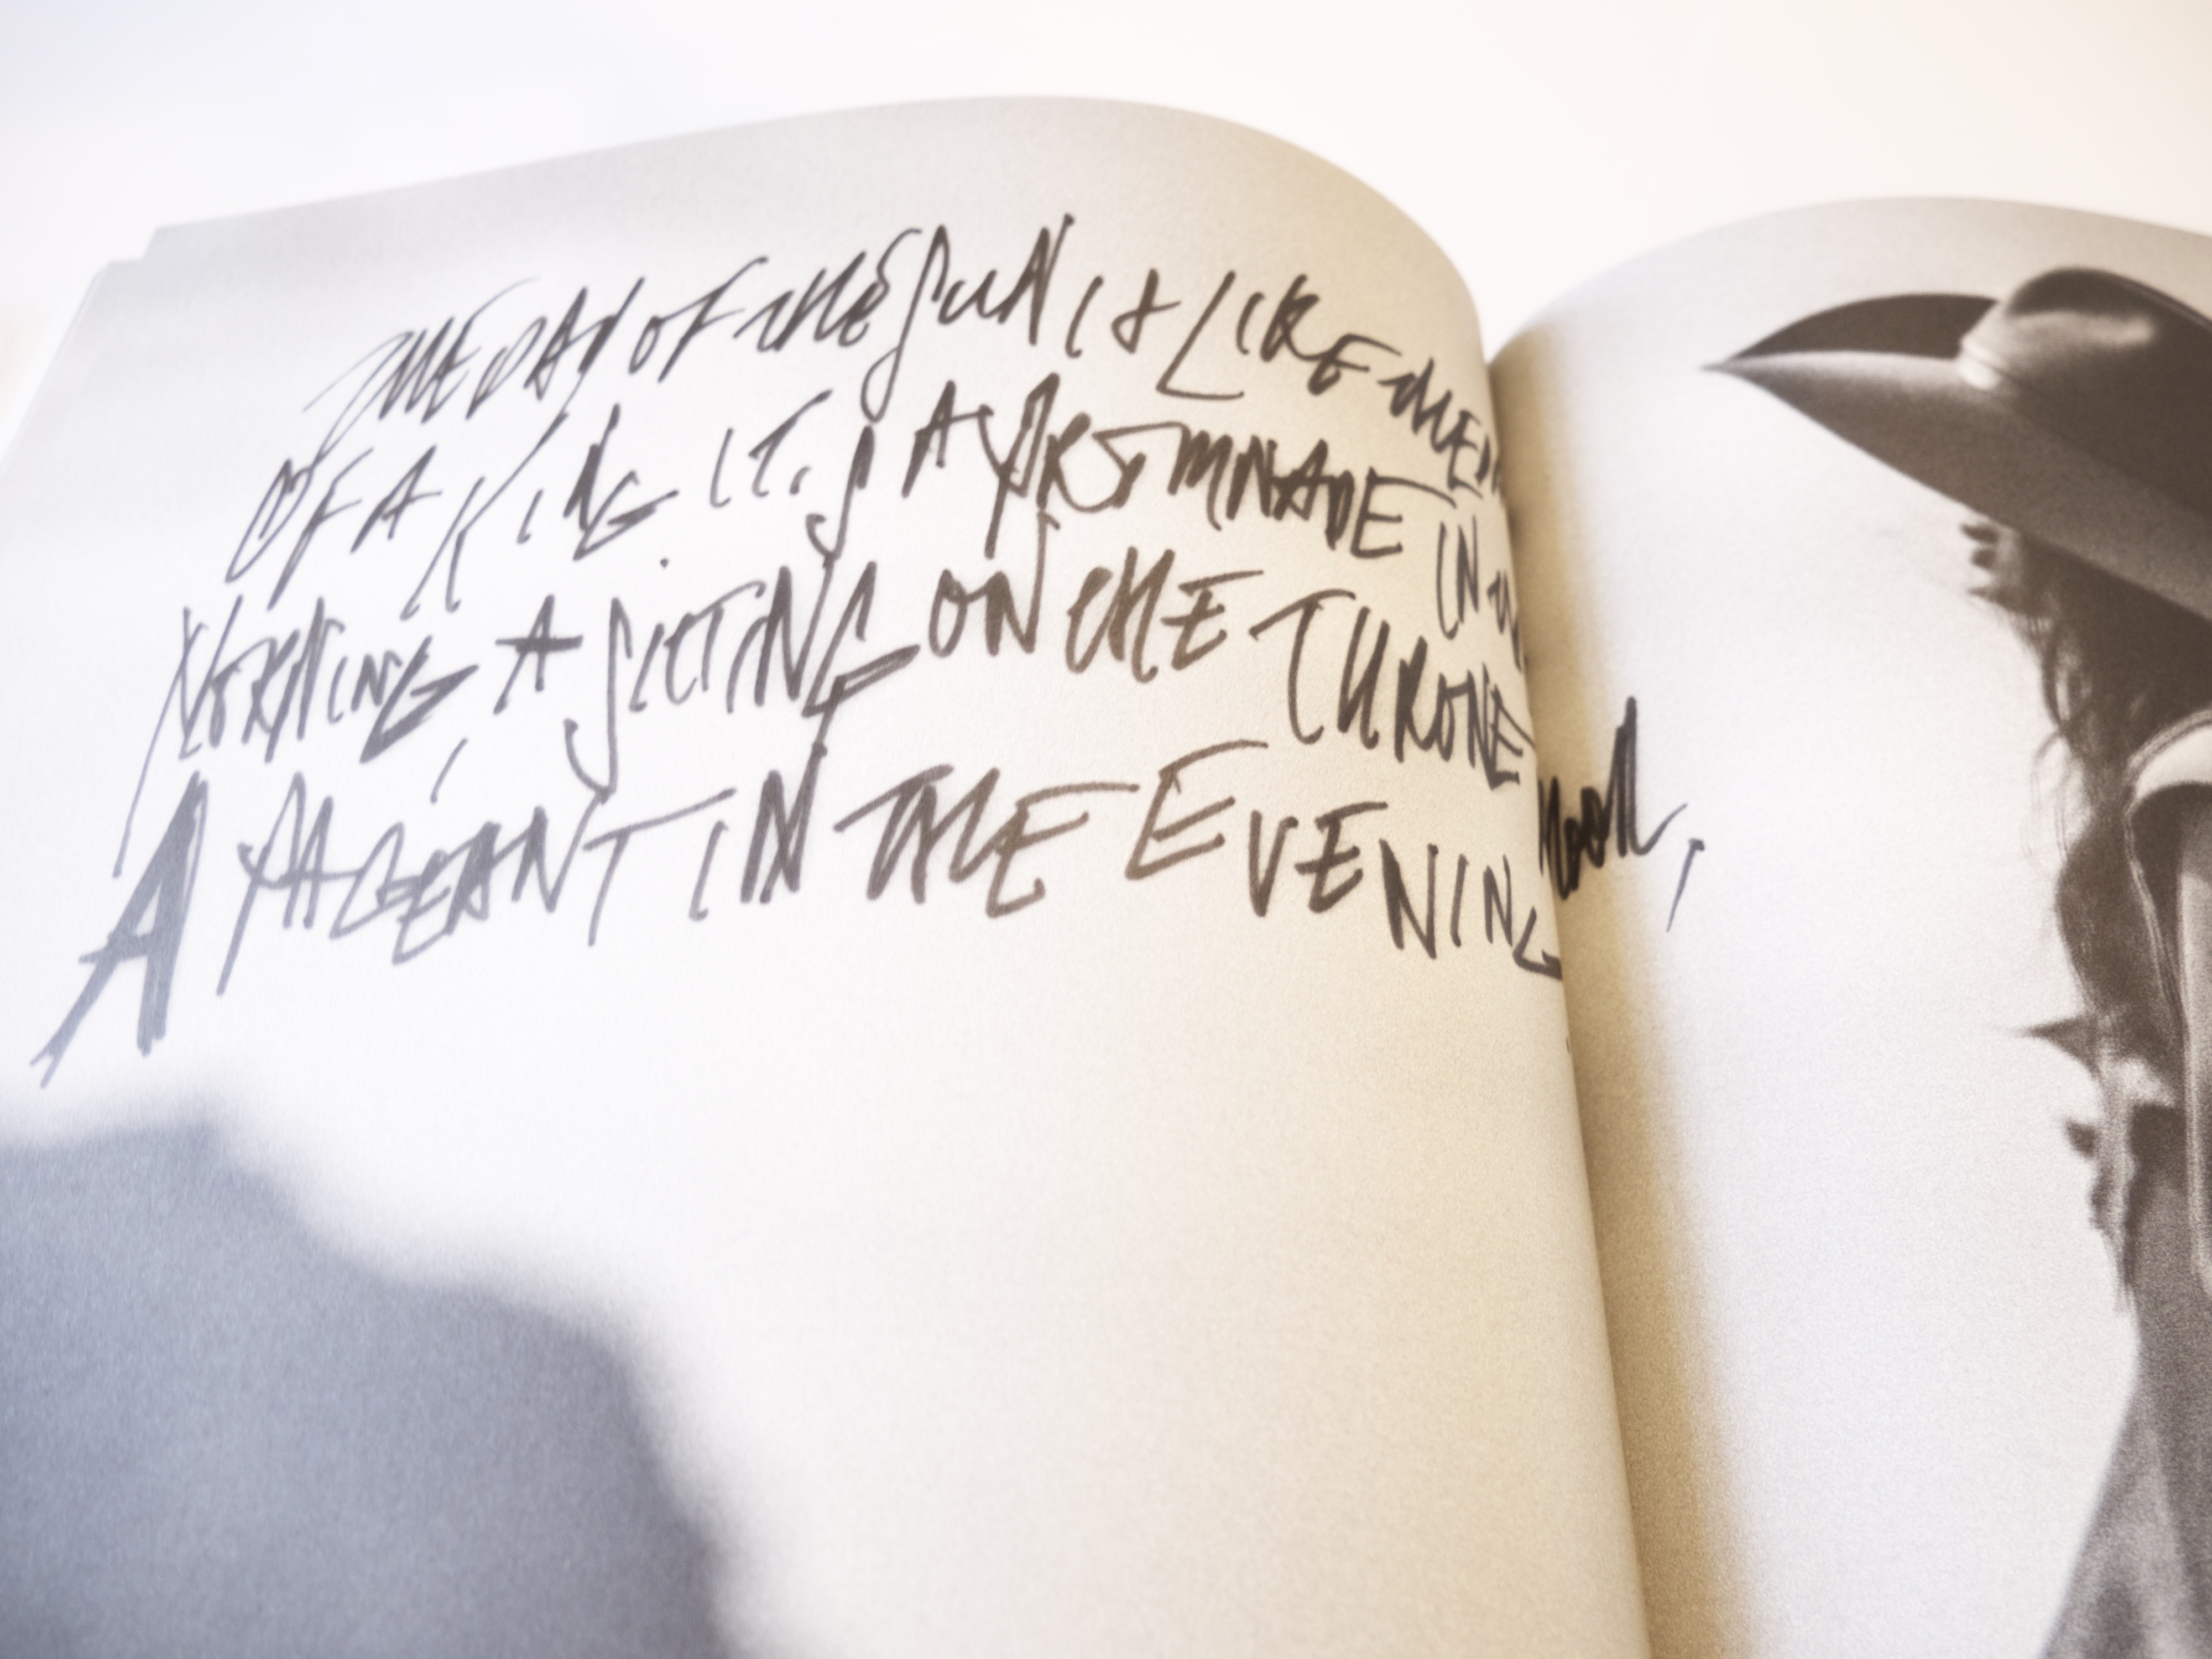 THE DAY OF THE SUN IS LIKE THE
OF A KING. IT IS A PROMENADE IN
MORNING, A SITTING ON THE THRONE NOON,
A PAGEANT IN THE EVENING